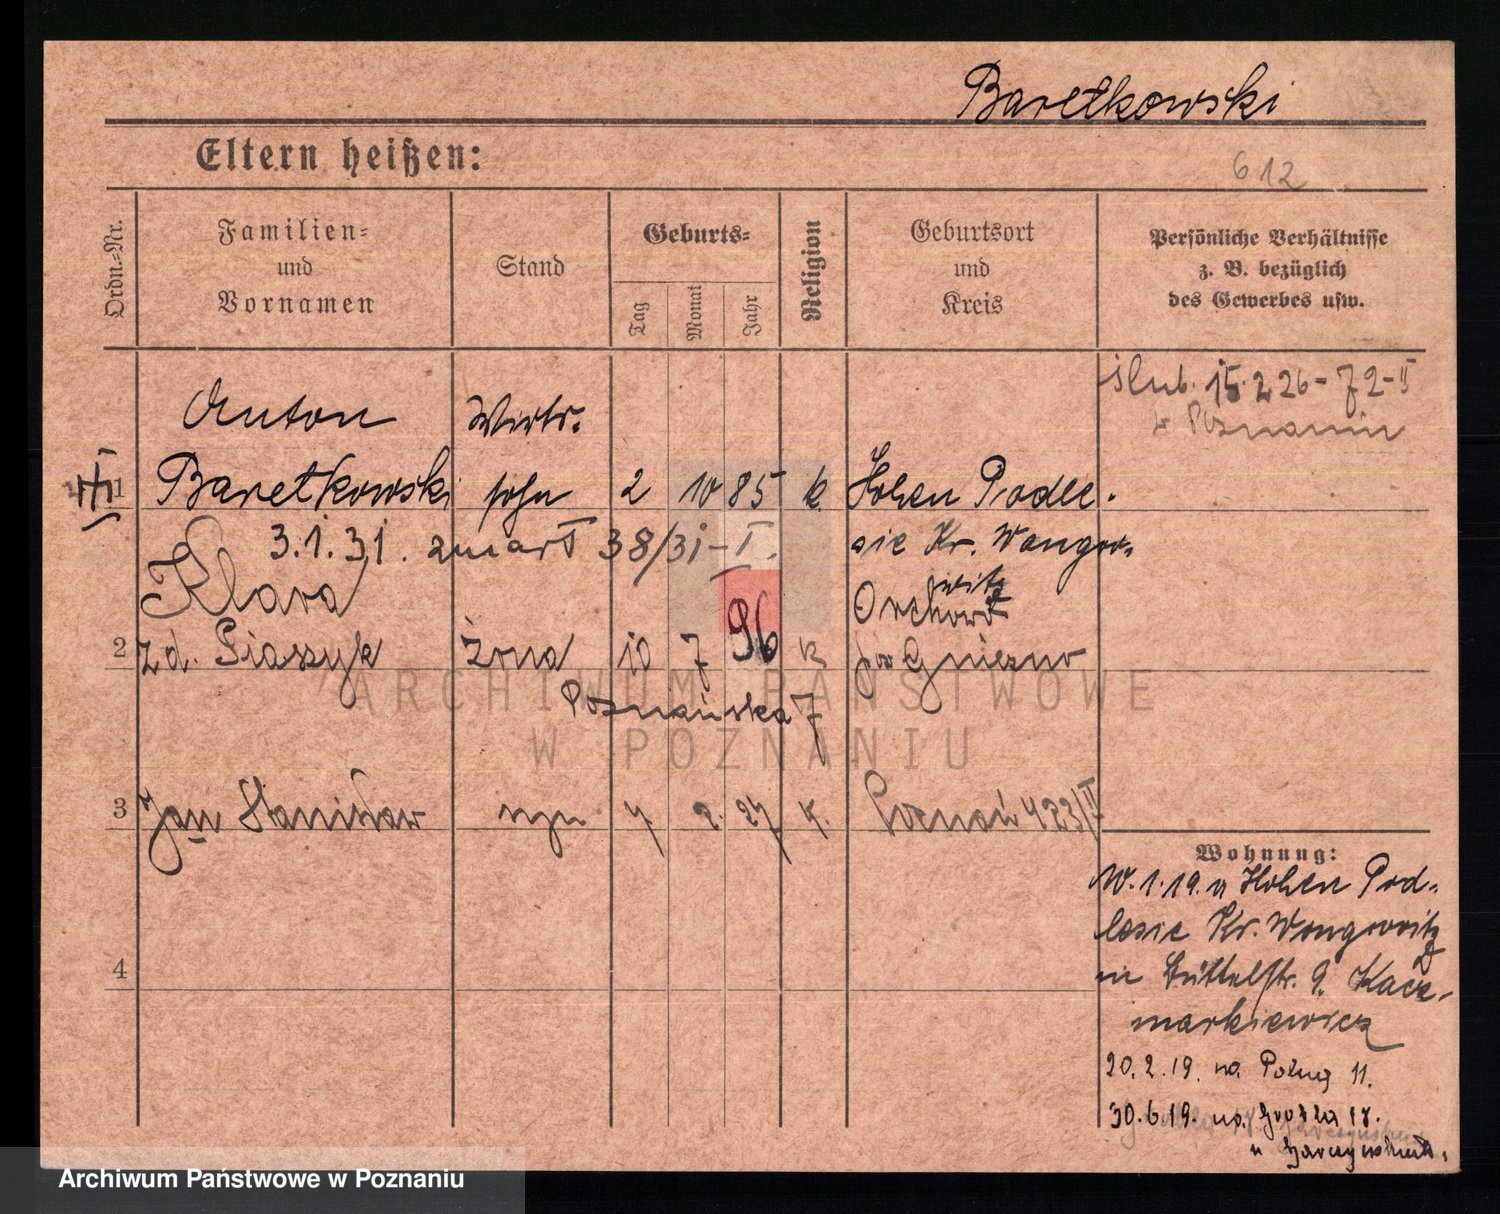 Baretkowski
Eltern heißen:
612
Ordn.-Nr.
Familien-
und
Vornamen
Stand
Geburts-
Tag
Monat
Jahr
Religion
Geburtsort
und
Kreis
Persönliche Verhältnisse
z. B. bezüglich
des Gewerbes usw.
ślub. 15.2 26 - 72 - II
w Poznaniu
Anton Wirts-
1 Baretkowski sohn 2 10 85 k. Hohen Podle-
3.1.31. zmarł 38/31 - I. sie Kr. Wongro-
witz
Klara Orchowo
2 zd. Ptaszyk żona 10 7 96 k Gniezno
Poznańska 7
3 Jan Stanisław syn 4 2. 27 k. Poznań 423/II
4
Wohnung:
W. 1.19. v Hohen Pod-
lesie Kr. Wongrowitz
in Büttelstr. 9. Kacz-
markiewicz
20.2.19. na 11.
30.6.19. na. 18.
u
ARCHIWUM PAŃSTWOWE
W POZNANIU
Archiwum Państwowe w Poznaniu